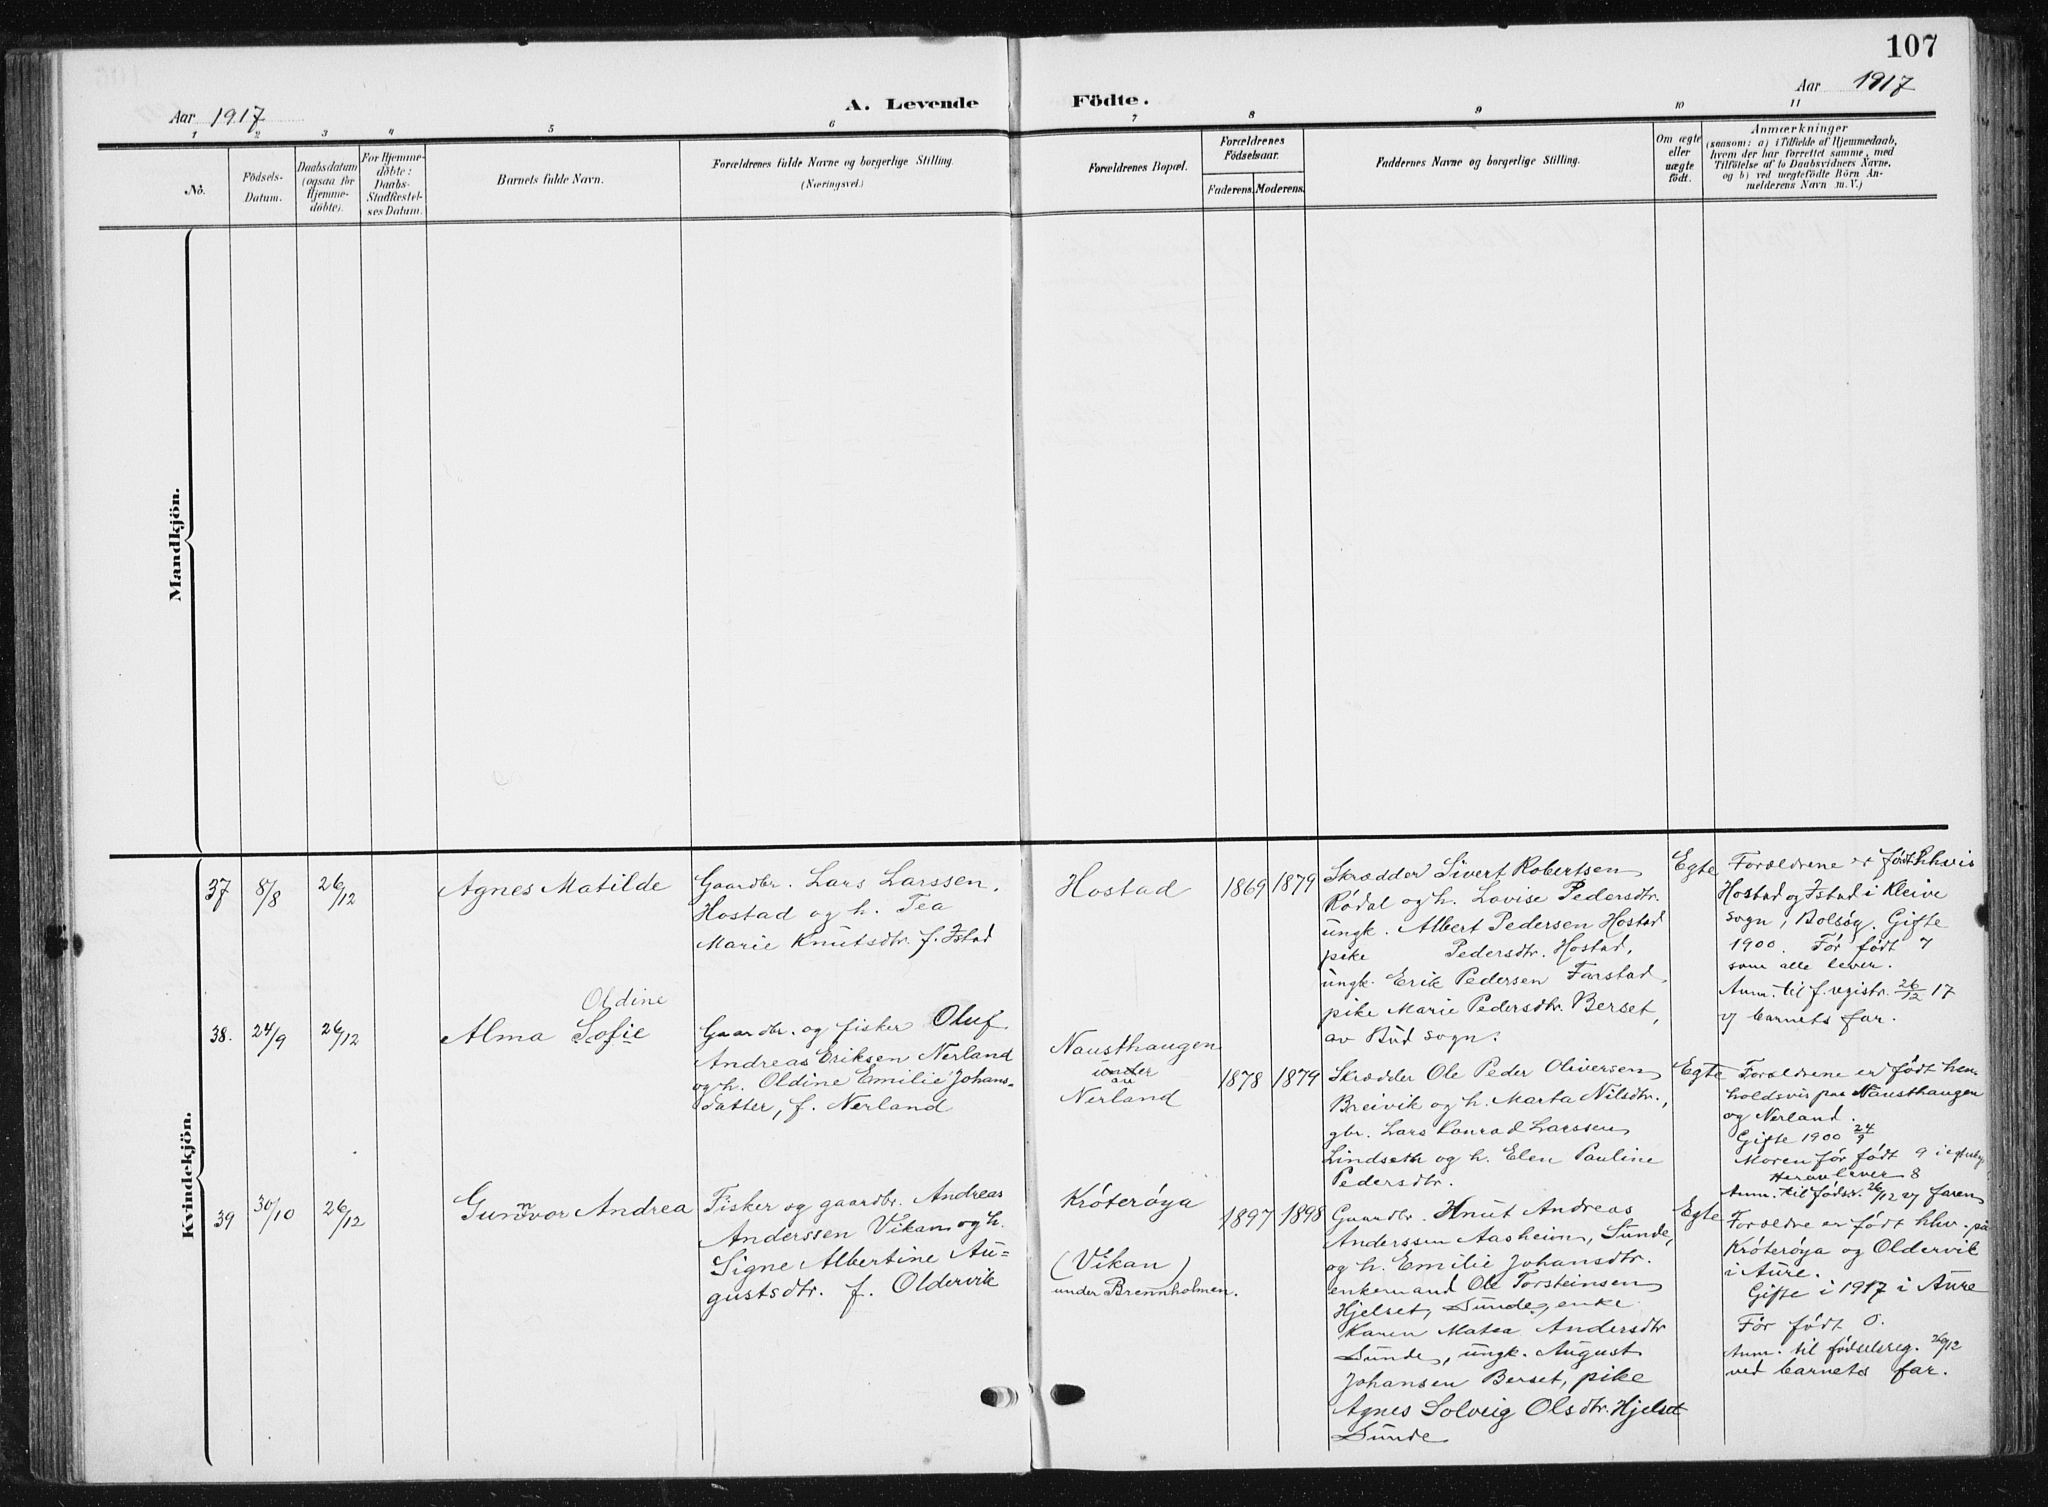 107
Aar 1917
A. Levende
Födte.
Aar 1917
1 2 3 4 5 6 7 8 9 10 11
Nö.
Födsels-
Datum.
Daabsdatum
(ogsaa for
Hjemme-
döbte).
For Hjemme-
döbte:
Daabs-
Stadfæstel-
ses Datum.
Barnets fulde Navn.
Forældrenes fulde Navne og borgerlige Stilling.
(Næringsvei.)
Forældrenes Bopæl.
Forældrenes
Födselsaar.
Faderens. Moderens.
Faddernes Navne og borgerlige Stilling.
Om ægte
eller
uægte
födt.
Anmærkninger
(saasom: a) i Tilfælde af Hjemmedaab,
hvem der har forrettet samme, med
Tilföielse af to Daabsvidners Navne,
og b) ved uægtefödte Börn An-
melderens Navn m.V.)
Mandkjön.
Kvindekjön.
37
8/8
26/12
Agnes Matilde
Gaardbr. Lars Larssen
Hostad og h. Tea
Marie Knutsdtr. f. Istad
Hostad
1869
1879
Skrædder Sivert Robertsen
Rødal og h. Lovise Pedersdtr.
ungk. Albert Pedersen Hostad
pike Pedersdtr. Hostad,
ungk. Erik Pedersen Farstad,
pike Marie Pedersdtr. Berset,
av Bud sogn.
Egte
Forældrene er født hhvis
Hostad og Istad i Kleive
sogn, Bolsøy. Gifte
1900. Før født 7
som alle lever.
Anm. til f.registr. 26/12 17
v/ barnets far.
38.
24/9
26/12
Oldine
Alma Sofie
Gaardbr. og fisker Oluf
Andreas Eriksen Nerland
og h. Oldine Emilie Johans-
datter, f. Nerland
Nausthaugen
under
av
Nerland
1878
1879
Skrædder Ole Peder Oliversen
Breivik og h. Marta Nilsdtr.,
gbr. Lars Konrad Larssen
Lindseth og h. Elen Pauline
Pedersdtr.
Egte
Forældrene er født hen-
holdsvis paa Nausthaugen
og Nerland.
Gifte 1900 24/9
Moren før født 9 i
Herav lever 8
Anm. til fødsr. 26/12 v/ faren
39
30/10
26/12
Gunnvor Andrea
Fisker og gaardbr. Andreas
Anderssen Vikan og h.
Signe Albertine Au-
gustsdtr. f. Oldervik
Króterøya
(Vikan)
under Brennholmen.
1897
1898
Gaardbr. Knut Andreas
Anderssen Aasheim, Sunde,
og h. Emilie Johansdtr.
enkemand Ole Torsteinsen
Hjelset, Sunde, enke
Karen Matea Andersdtr
Sunde, ungk. August
Johansen Berset, pike
Agnes Solveig Olsdtr. Hjelset
Sunde
Egte
Forældre er født hhv. på
Króterøya og Oldervik
i Aure.
Gifte i 1917 i Aure
Før født 0.
Anm. til fødselsreg. 26/12
ved barnets far.